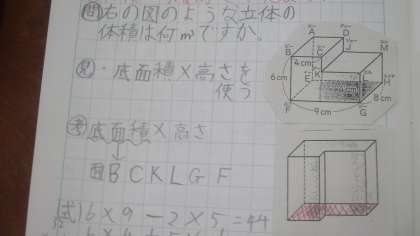 問 右の図のような立体の
体積は何m³ですか。
見・底面積×高さを
使う
考 底面積×高さ
面BCKLGF
式 6×9-2×5=44
A
D
B
C
J
M
4cm
K
E
H
6cm
F
9cm
G
8cm